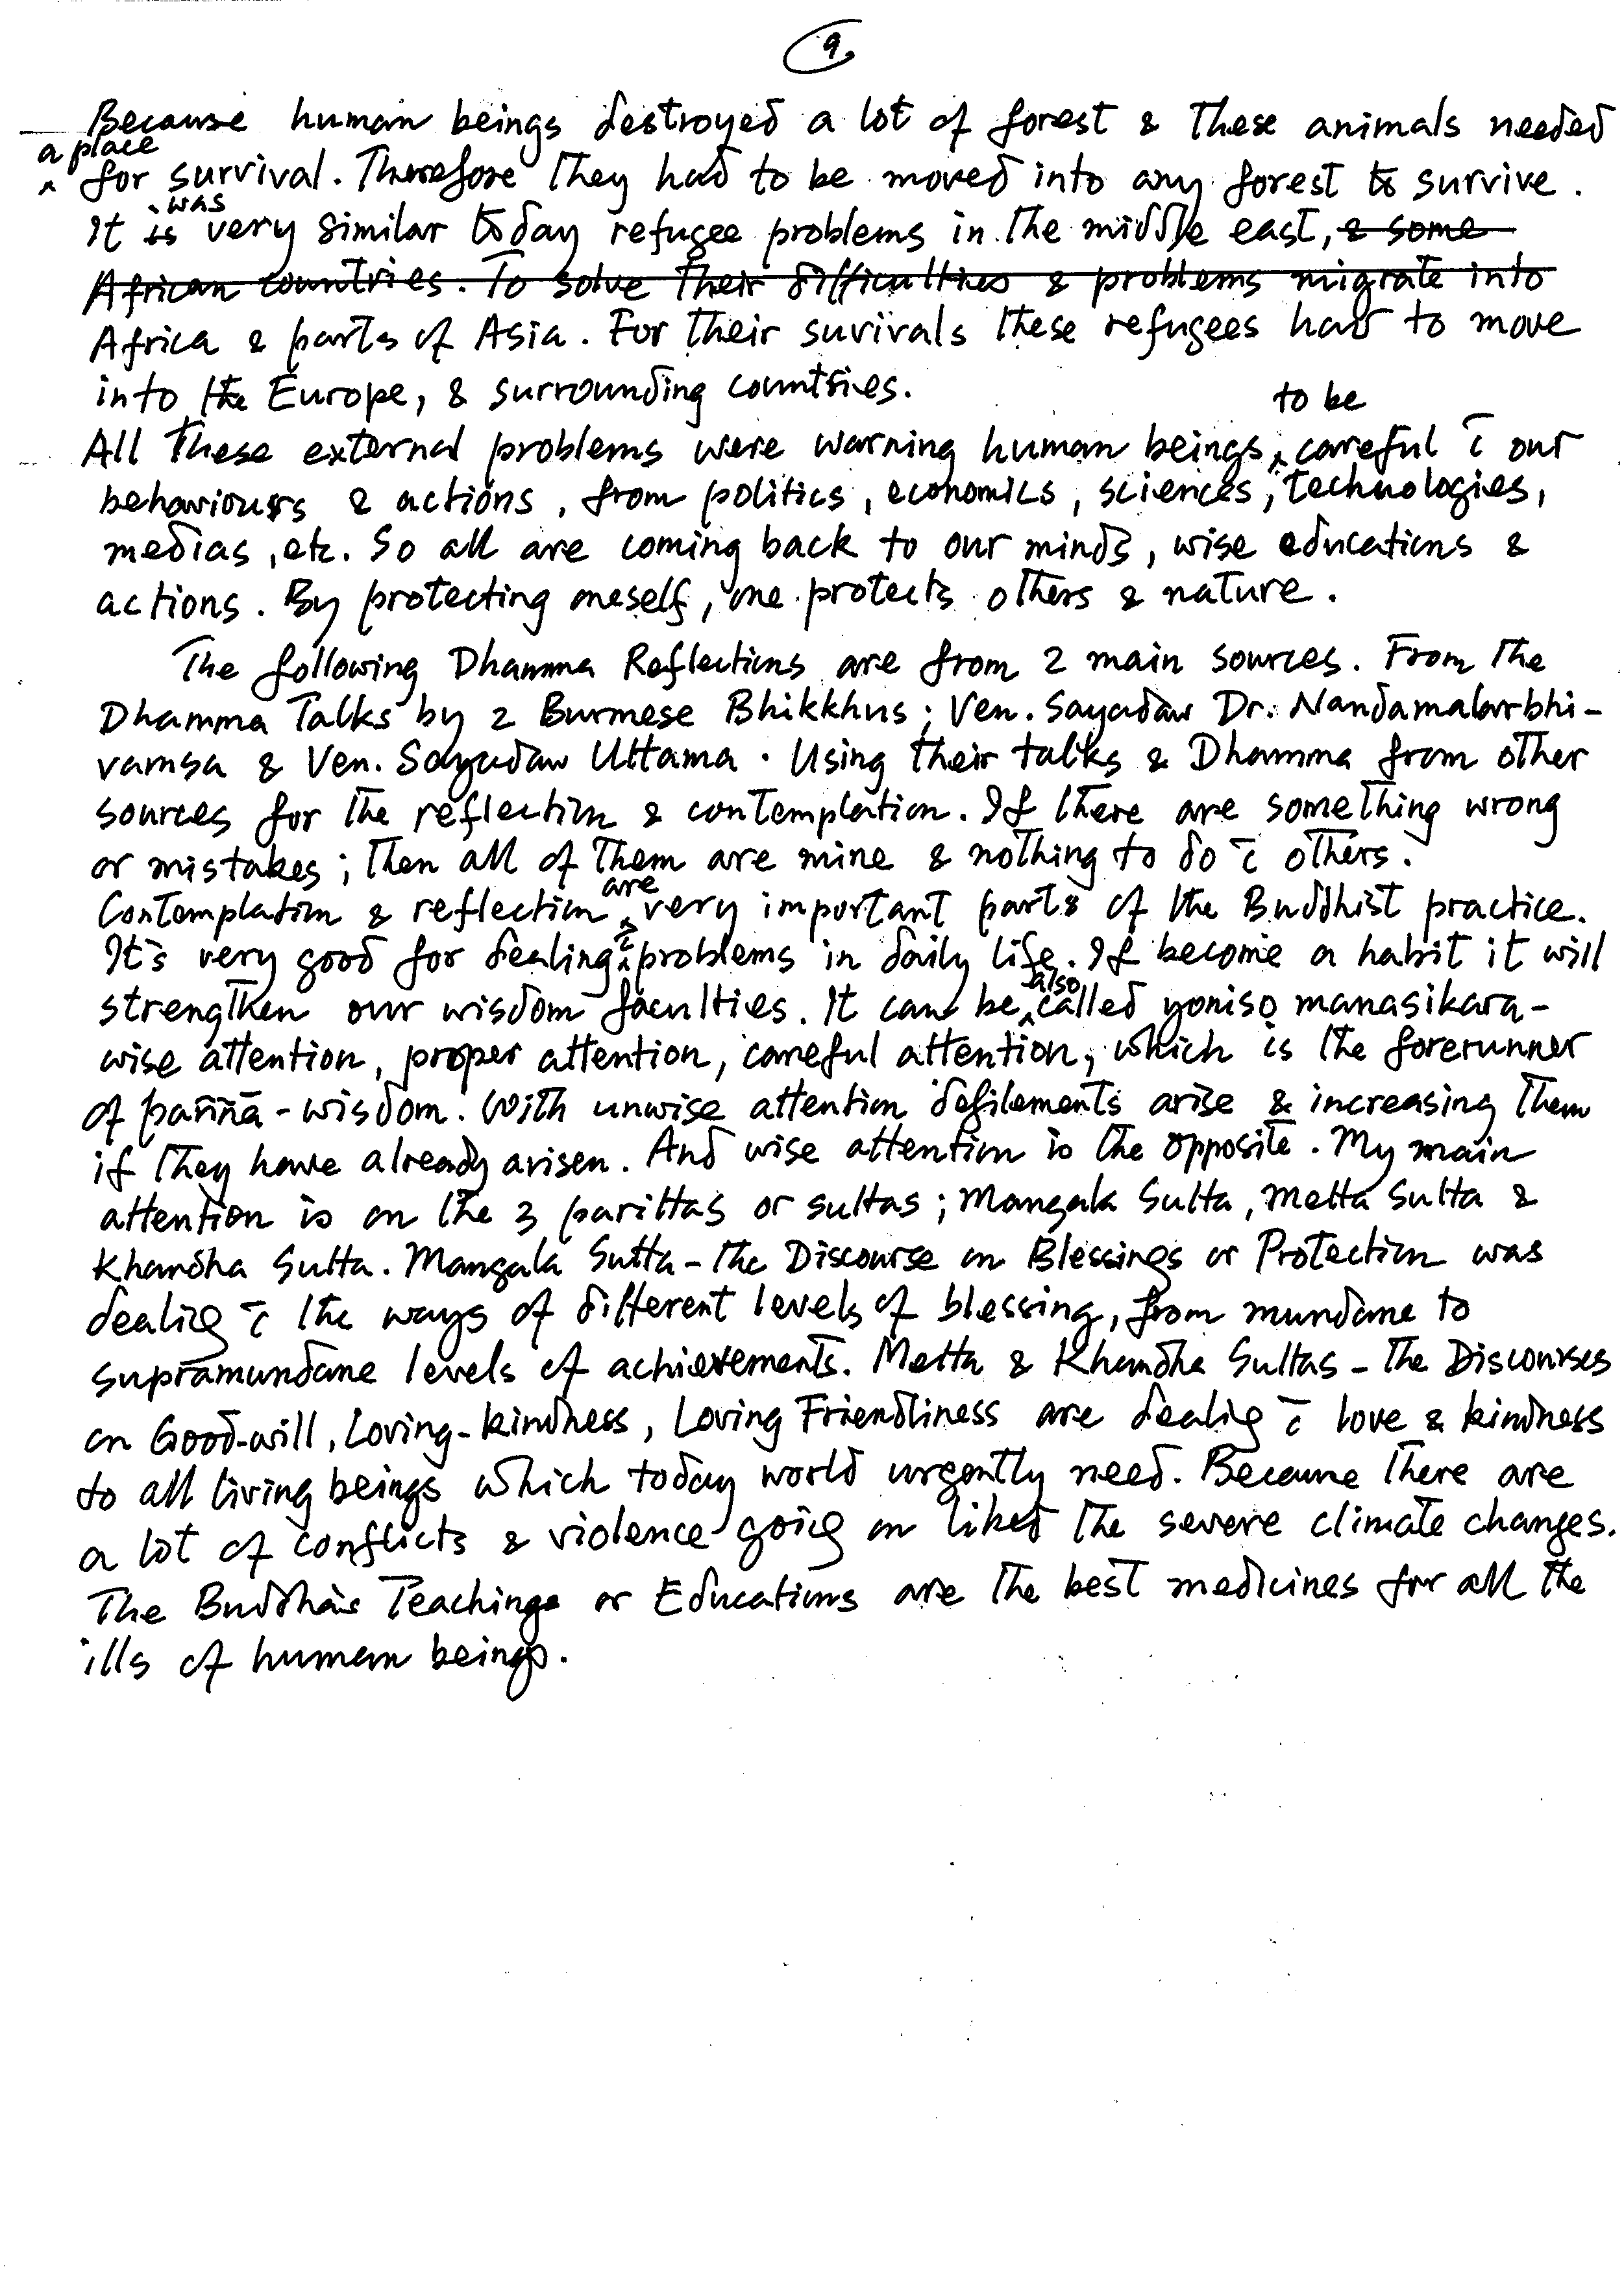 9
Because human beings destroyed a lot of forest & these animals needed
a place
^ for survival. Therefore they had to be moved into any forest to survive.
was
It is very similar today refugee problems in the middle east, & some
African countries. To solve their difficulties & problems migrate into
Africa & parts of Asia. For their survivals these refugees had to move
into the Europe, & surrounding countries.
to be
All these external problems were warning human beings ^ careful c̄ our
behaviours & actions, from politics, economics, sciences, technologies,
medias, etc. So all are coming back to our minds, wise educations &
actions. By protecting oneself, one protects others & nature.
The following Dhamma Reflections are from 2 main sources. From the
Dhamma Talks by 2 Burmese Bhikkhus; Ven. Sayadaw Dr. Nandamalarbhi-
vamsa & Ven. Sayadaw Uttama. Using their talks & Dhamma from other
sources for the reflection & contemplation. If there are something wrong
or mistakes; then all of them are mine & nothing to do c̄ others.
are
Contemplation & reflection ^ very important parts of the Buddhist practice.
It's very good for dealing c̄ ^ problems in daily life. If become a habit it will
also
strengthen our wisdom faculties. It can be ^ called yoniso manasikara-
wise attention, proper attention, careful attention, which is the forerunner
of paññā - wisdom. With unwise attention defilements arise & increasing them
if they have already arisen. And wise attention is the opposite. My main
attention is on the 3 parittas or suttas; Mangala Sutta, Metta Sutta &
Khandha Sutta. Mangala Sutta - the Discourse on Blessings or Protection was
dealig c̄ the ways of different levels of blessing, from mundane to
supramundane levels of achievements. Metta & Khandha Suttas - the Discourses
on Good-will, Loving-kindness, Loving Friendliness are dealig c̄ love & kindness
to all living beings which today world urgently need. Because there are
a lot of conflicts & violence goig on liked the severe climate changes.
The Buddha's Teachings or Educations are the best medicines for all the
ills of human beings.